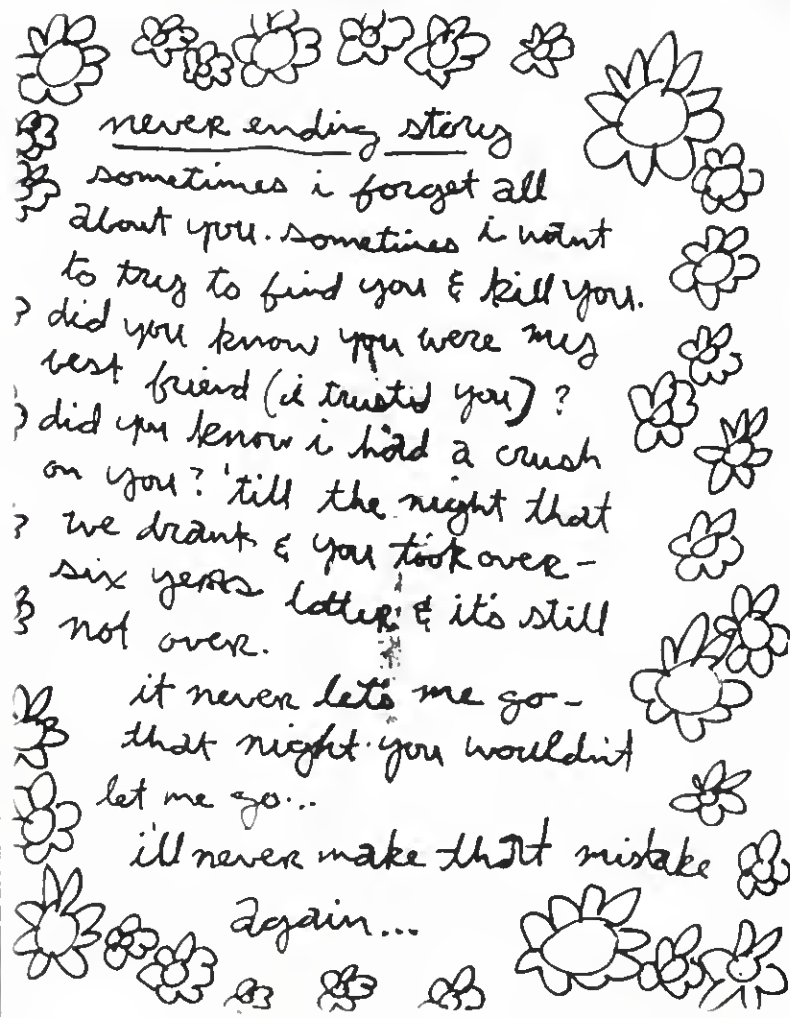 never ending story
sometimes i forget all
about you. sometimes i want
to try to find you & kill you.
did you know you were my
best friend (i trusted you)?
did you know i had a crush
on you? 'till the night that
we drank & you took over-
six years latter & it's still
not over.
it never let's me go-
that night you wouldn't
let me go...
i'll never make that mistake
again...